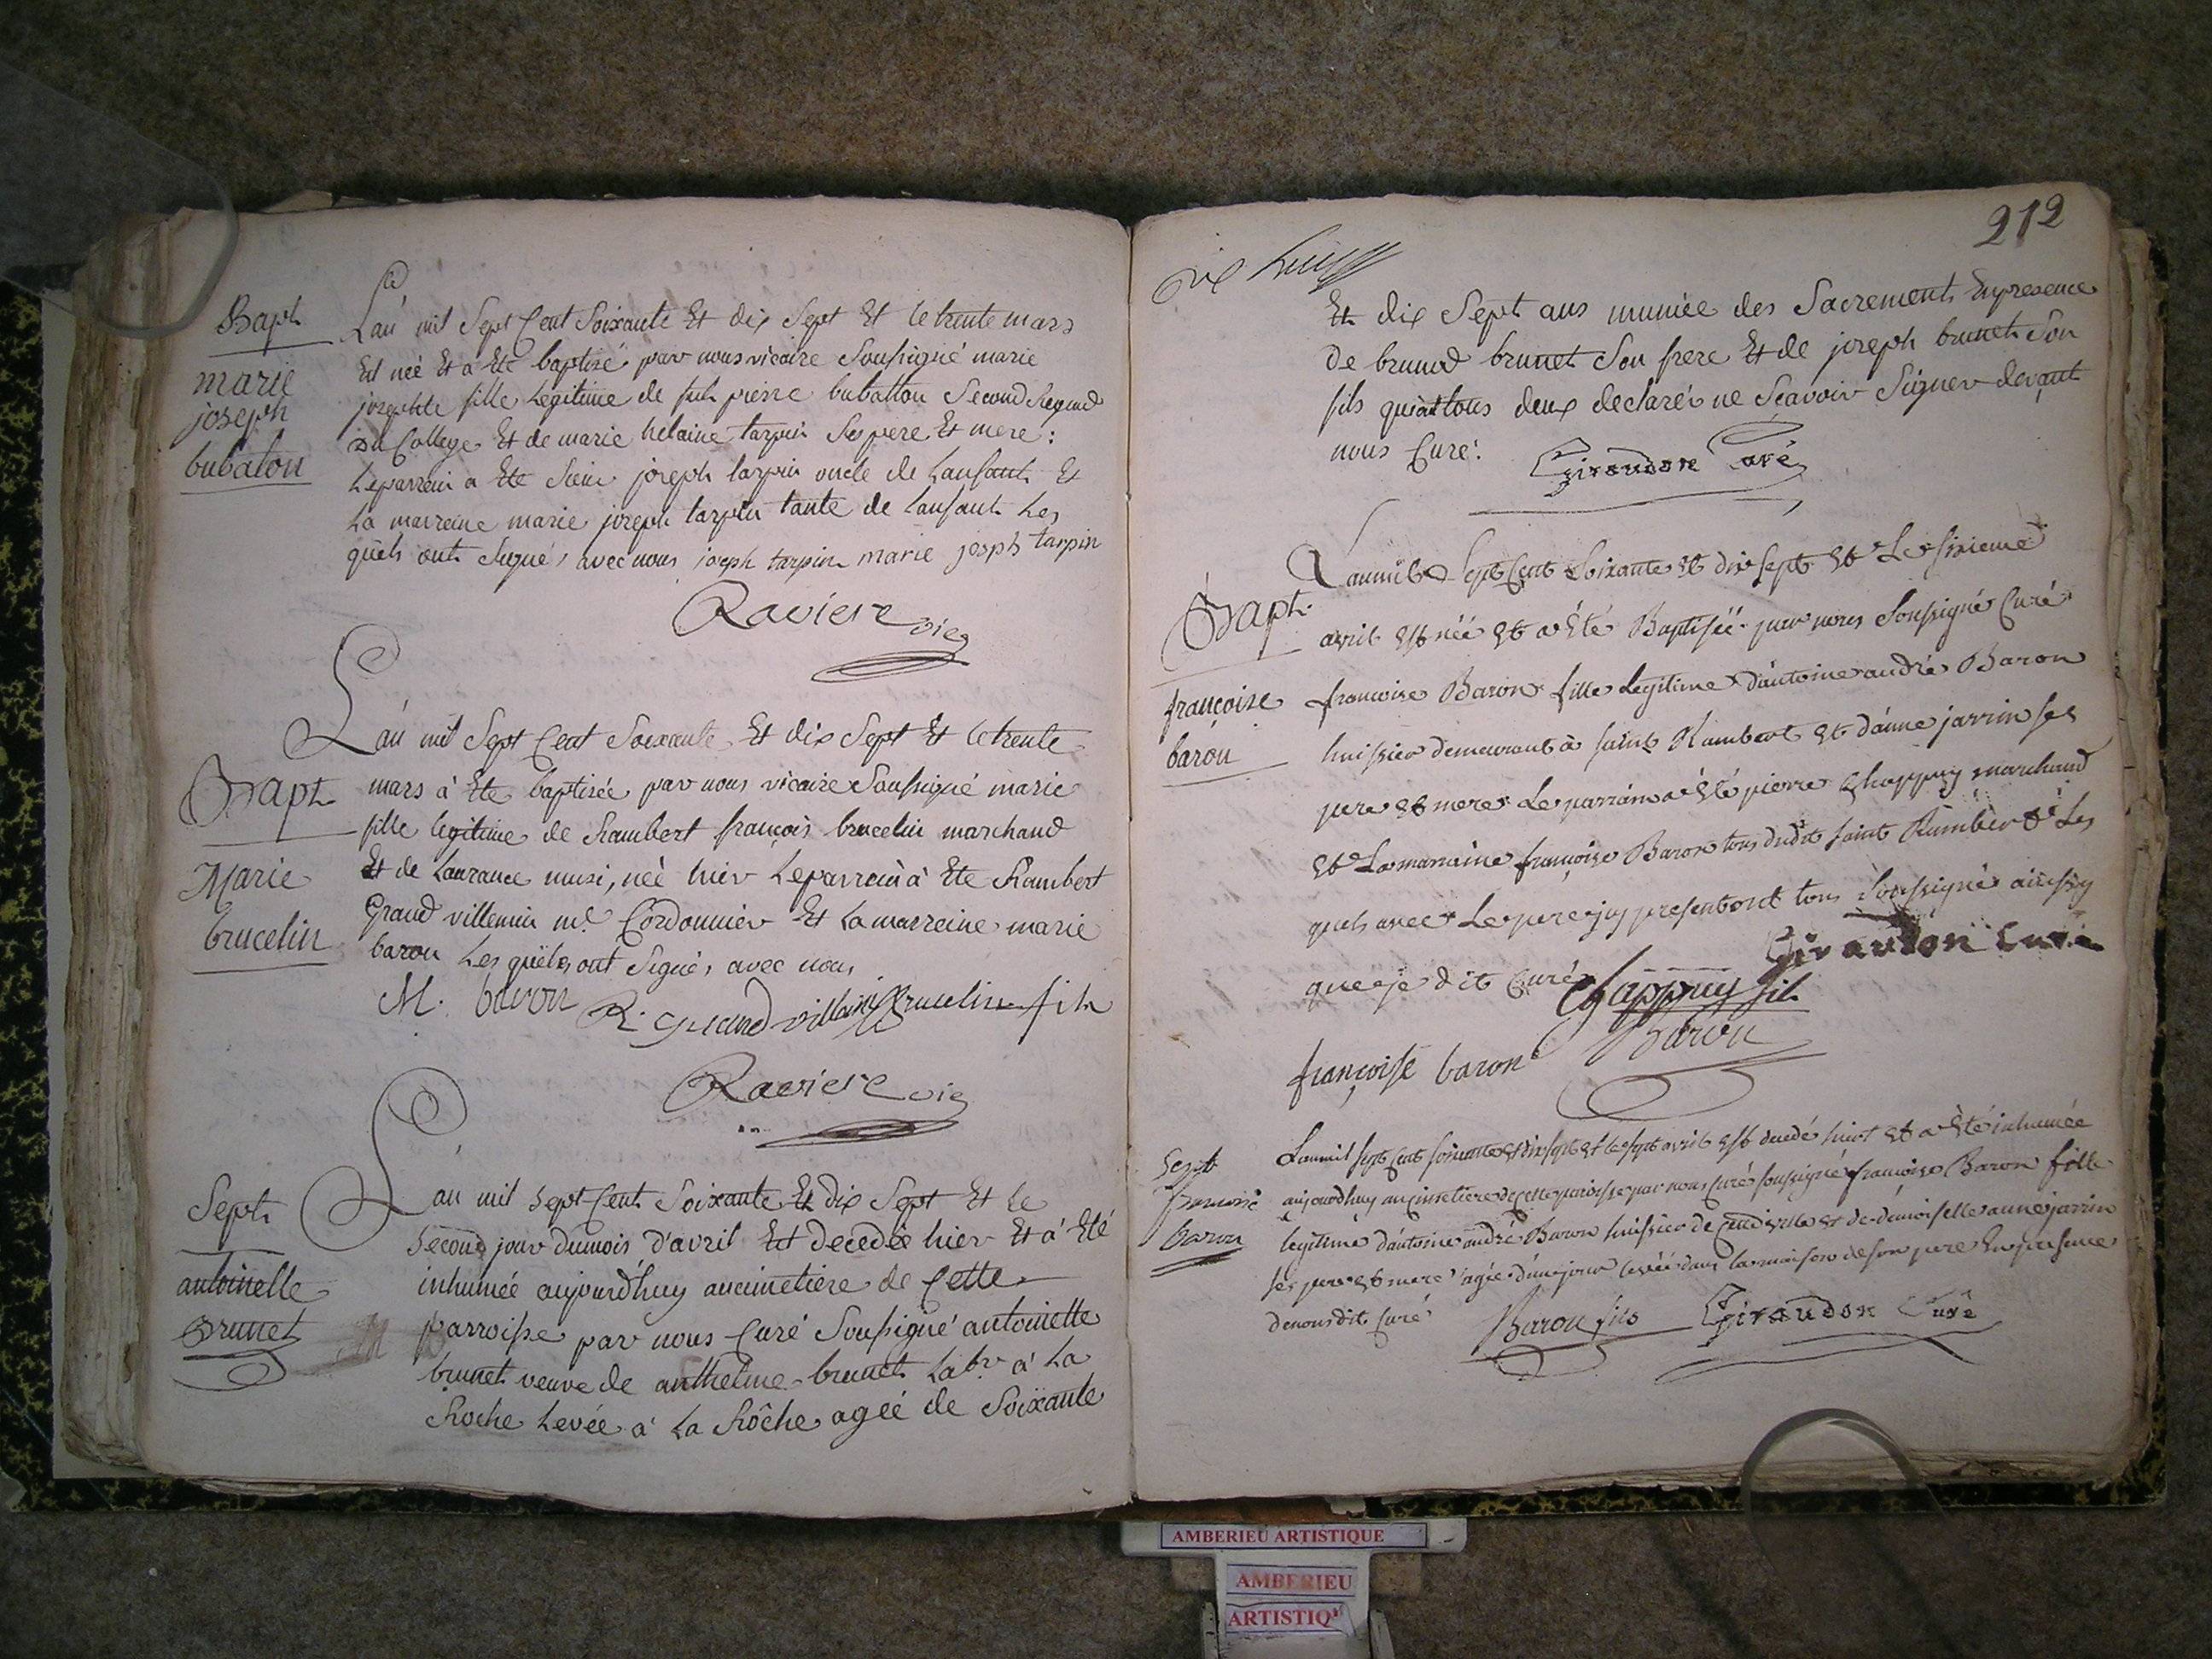 Bapt
marie
joseph
bubaton
L'an mil Sept Cent Soixante Et dix Sept Et le trente mars
Est née Et a Eté baptisé par nous vicaire Soussigné marie
josephte fille Légitime de pierre bubatton Second Regend
du College Et de marie helaine tarpin Ses pere Et mere :
Le parrein a Eté Sieur joseph tarpin oncle de L'anfant Et
La marreine marie joseph tarpin tante de L'anfant Les
quels ont Signés avec nous joseph tarpin marie joseph tarpin
Raviere vic
Bapt
Marie
brucelin
L'an mil Sept Cent Soixante Et dix Sept Et le trente
mars à Eté baptisée par nous vicaire Soussigné marie
fille legitime de Rambert françois brucelin marchand
Et de Laurance musi, née hier Le parrein à Eté Rambert
Grand villemin me. Cordonnier Et La marreine marie
baron Les quels ont Signés avec nous
M. baron R. grand villemin Brucelin fils
Raviere vic
Sept
antoinette
Brunet
L'an mil sept Cent Soixante Et dix Sept Et Le
Second jour du mois d'avril Est decedée hier Et à Eté
inhumée aujourd'huy au cimetiere de Cette
parroisse par nous Curé Soussigné antoinette
brunet veuve de anthelme brunet Labr. à La
Roche Levée à La Rôche agée de Soixante
212
Et dix Sept ans muniée des Sacrements En presence
De brunod brunet Son frere Et de joseph brunet Son
fils qui ont tous deux declarés ne Scavoir Signer devant
nous Curé. Girauddon Curé
Bapt.
françoise
baron
L'an mil Sept Cent Soixante et dix sept et Le sixieme
avril est née et a été Baptisée par nous Soussigné Curé
francoise Baron fille Legitime d'antoine andré Baron
huissier demeurant à saint Rambert et d'anne jarrin ses
pere et mere Le parrain a été pierre Chappuy marchand
et La marraine françoise Baron tous dudit saint Rambert Les
quels avec Le pere jcy present ont tous Soussigné ainssy
que je dit Curé Giraudon Curé
Chappuy fils
françoise baron Baron
Sept
francoise
Baron
L'an mil sept cent soixante et dix sept et le sept avril est decedé hier et a été inhumée
aujourdhuy au cimetiere de cette paroisse par nous Curé soussigné françoise Baron fille
legitime d'antoine andré Baron huissier de cette ville et de demoiselle anne jarrin
ses pere et mere agée d'une jour levée dans la maison de son pere En presence
de nous dit Curé Baron fils Giraudon Curé
AMBERIEU ARTISTIQUE
AMBERIEU
ARTISTIQ